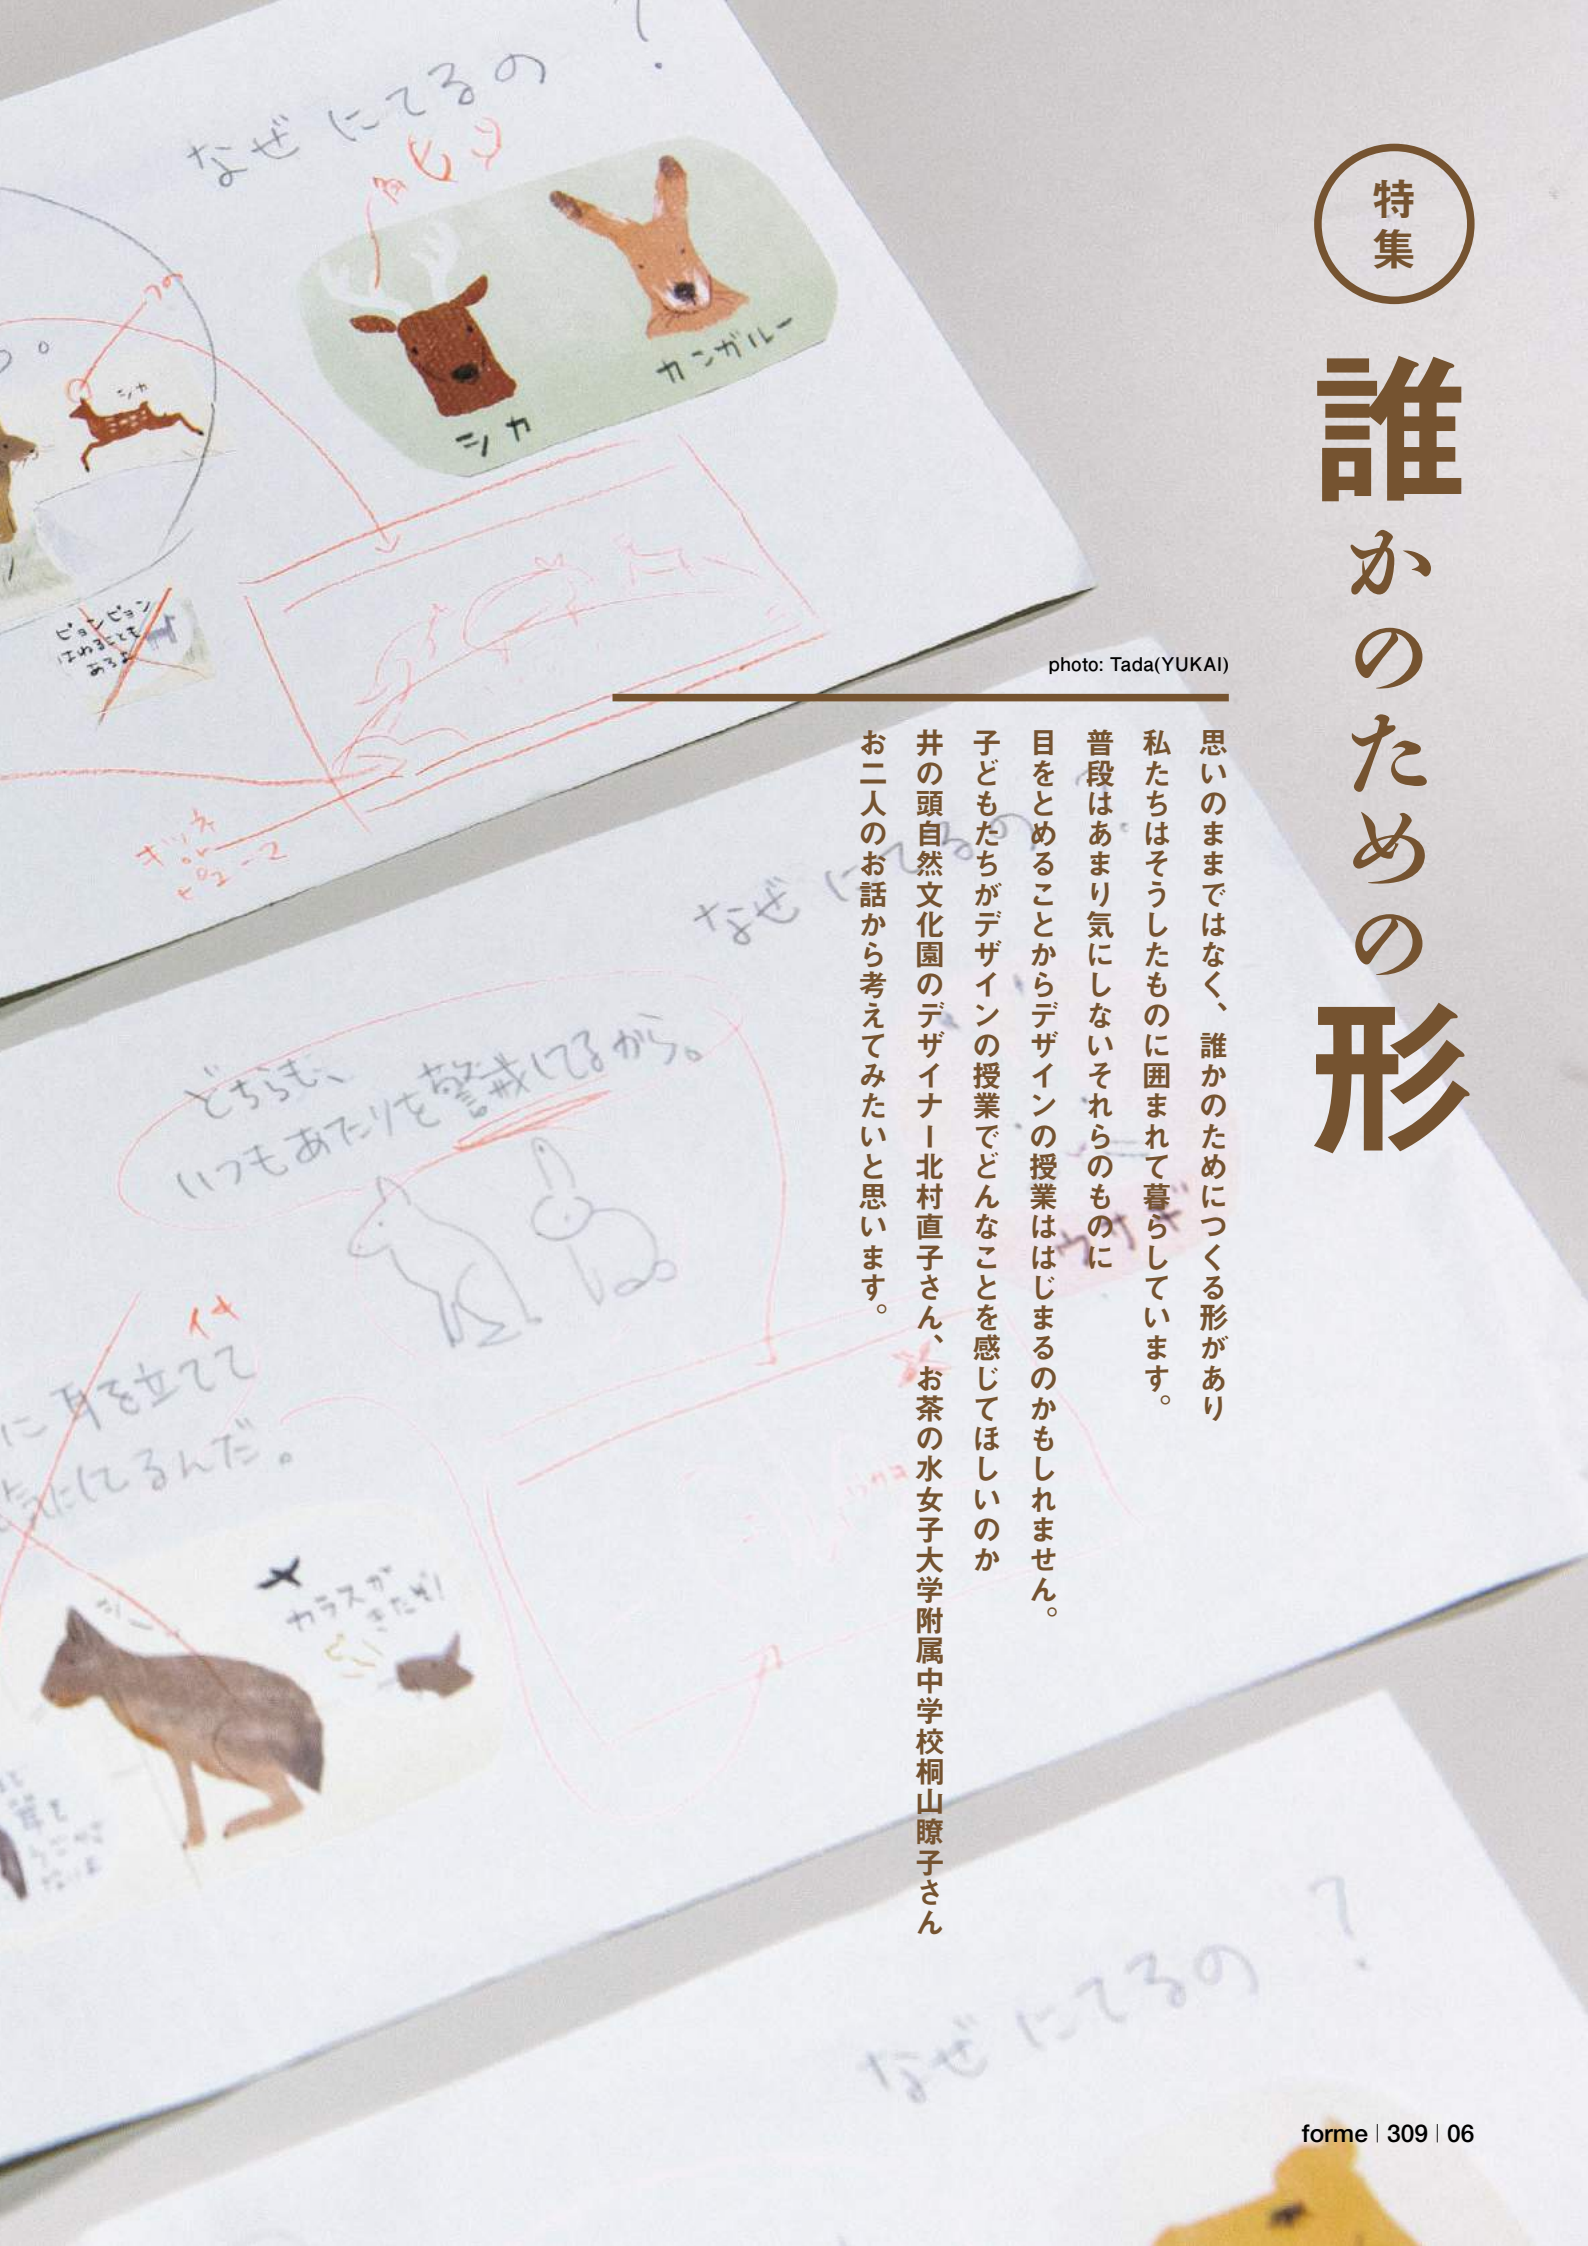 特集
誰かのための形
photo: Tada(YUKAI)
思いのままではなく、誰かのためにつくる形があり
私たちはそうしたものに囲まれて暮らしています。
普段はあまり気にしないそれらのものに
目をとめることからデザインの授業ははじまるのかもしれません。
子どもたちがデザインの授業でどんなことを感じてほしいのか
井の頭自然文化園のデザイナー北村直子さん、お茶の水女子大学附属中学校桐山瞭子さん
お二人のお話から考えてみたいと思います。
なぜ にてるの ?
カンガルー
シカ
シカ
ピョンピョン
はねることも
あるよ
キツネ
なぜ にてるの
ウサギ
どちらも、
いつもあたりを警戒してるから。
に耳を立てて
気にしてるんだ。
カラスが
きたぞ!
なぜ にてるの ?
forme | 309 | 06